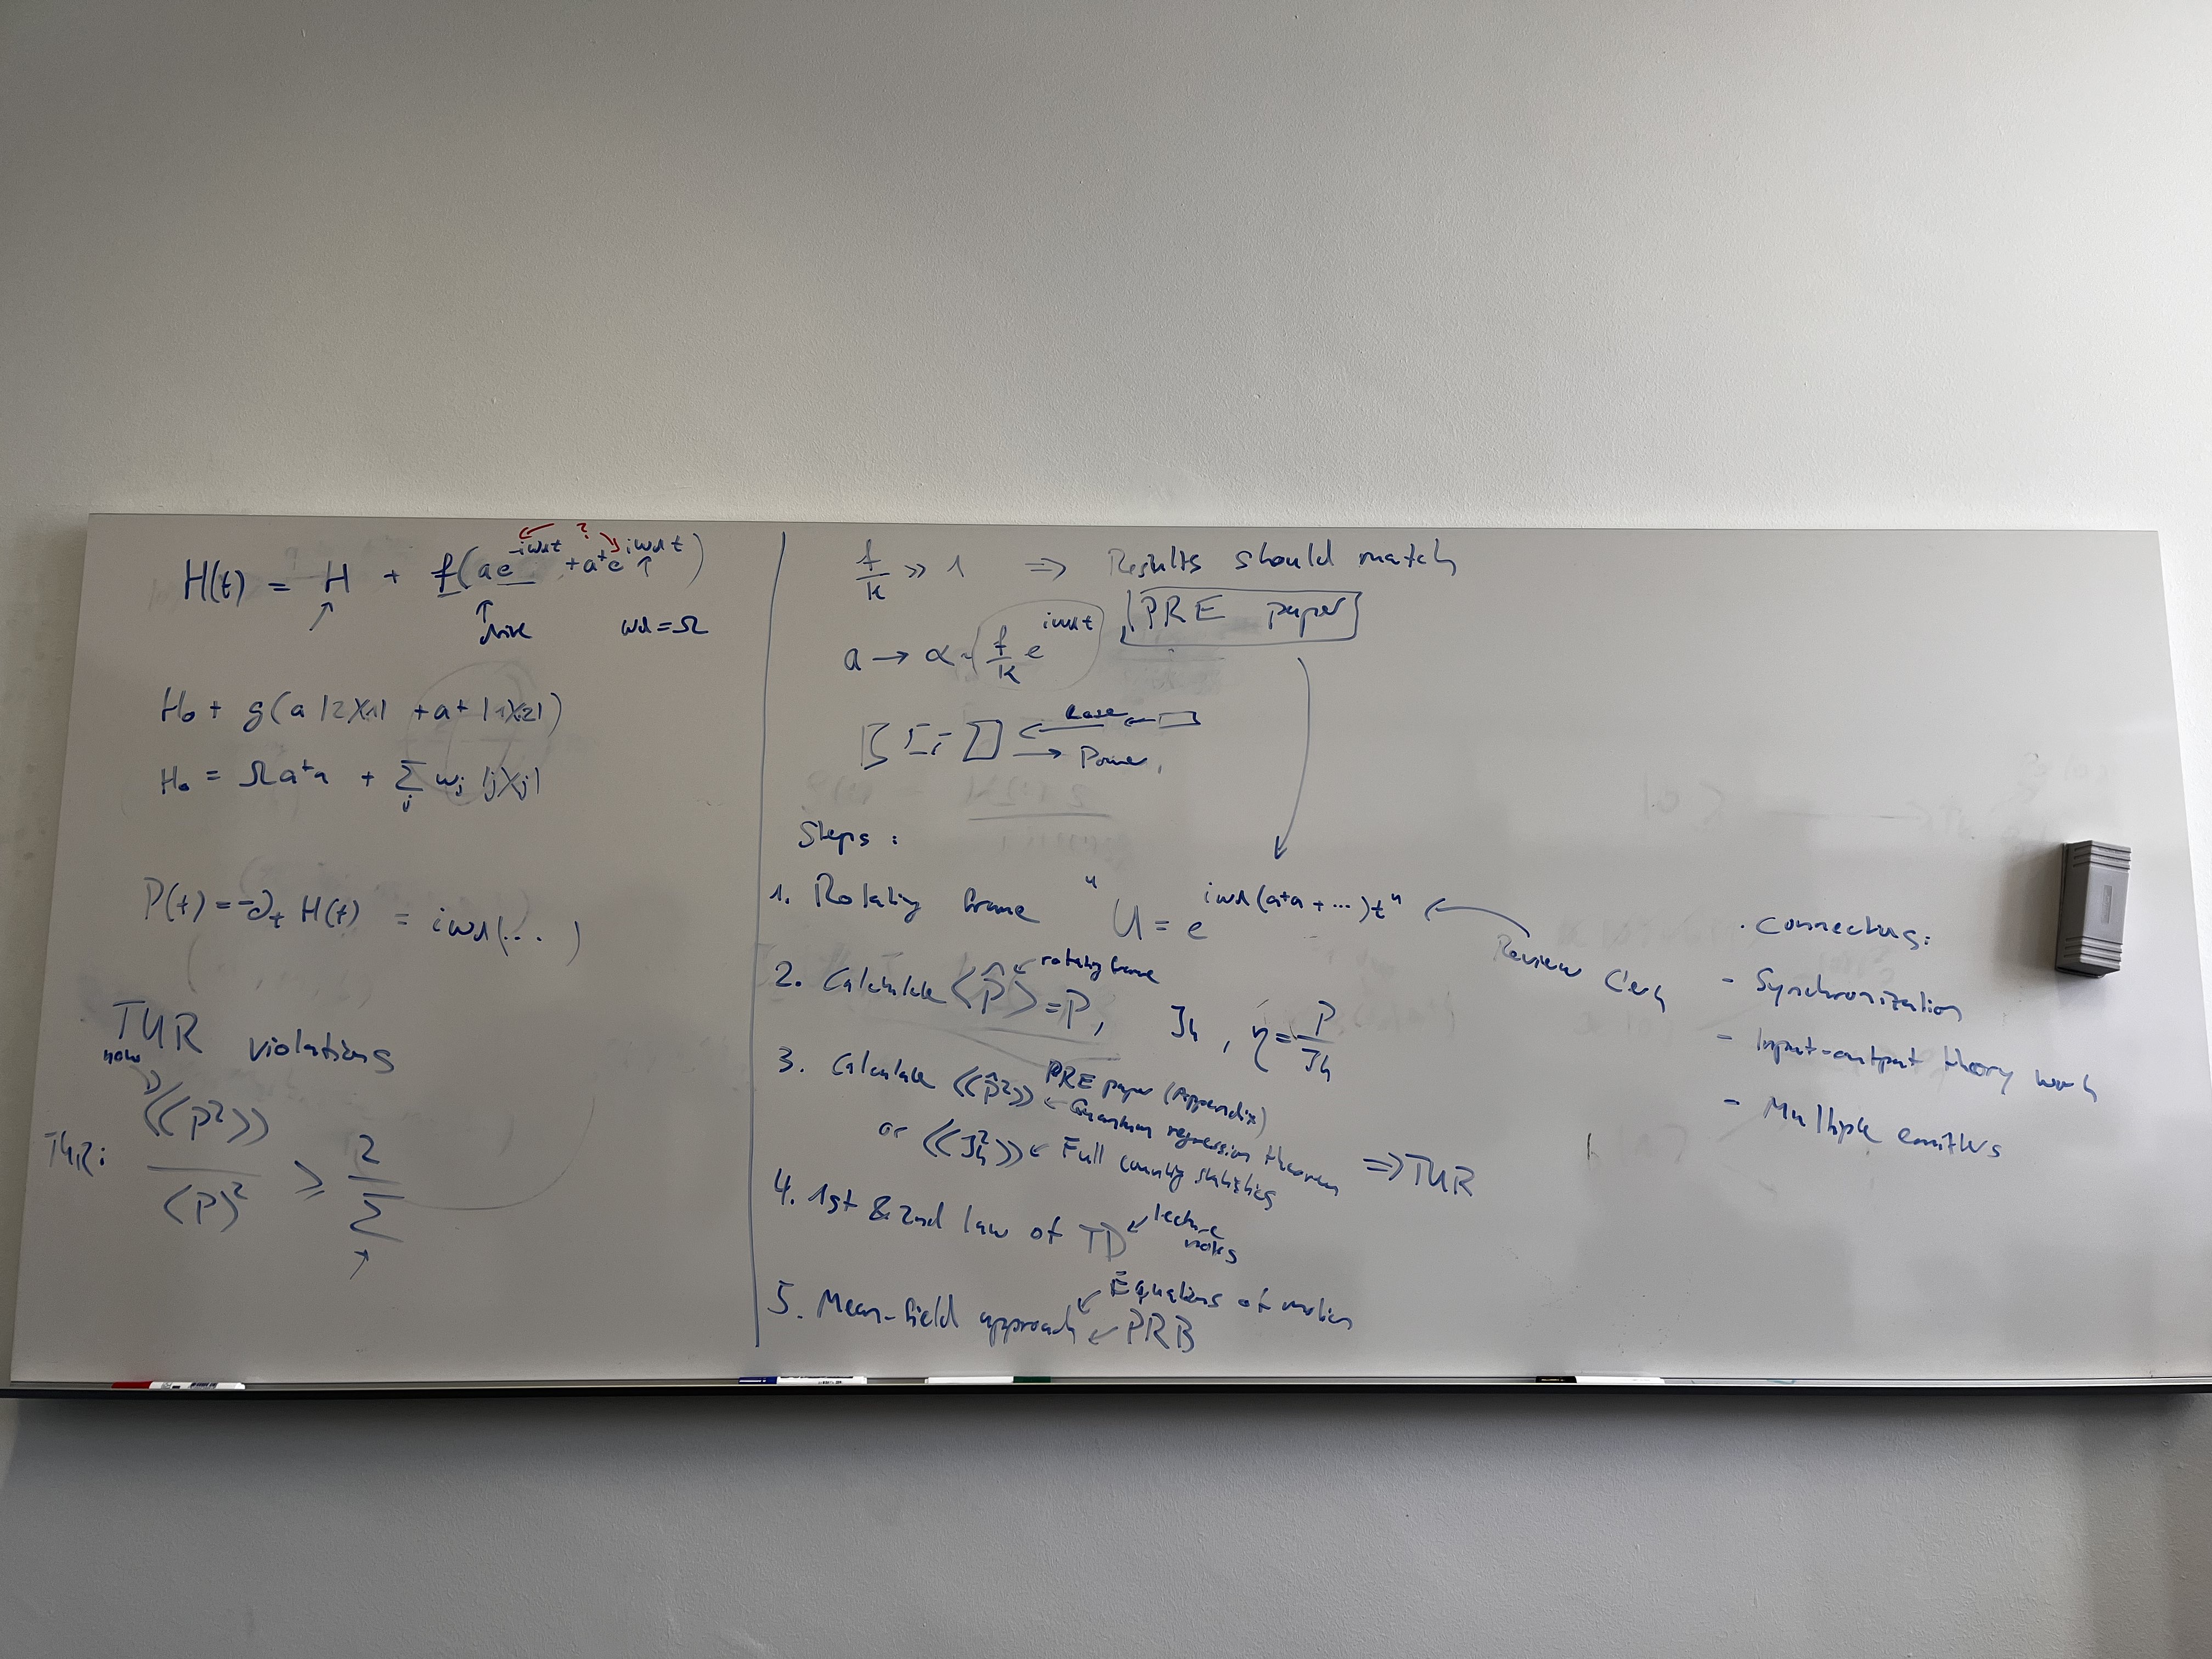 H(t) = H + f(ae^{-iωdt} + a†e^{iωdt})
?
↑ drive ωd = Ω
H₀ + g(a |2⟩⟨1| + a† |1⟩⟨2|)
H₀ = Ω a†a + Σ_j ω_j |j⟩⟨j|
P(t) = -∂_t H(t) = iωd(...)
TUR violations
now
TUR: ⟨⟨P²⟩⟩ / ⟨P⟩² ≥ 2/Σ
f/κ ≫ 1 ⇒ Results should match
PRE paper
a → α ~ f/κ e^{iωdt}
Laser
Power
Steps:
1. Rotating frame "U = e^{iωd(a†a + ...)t}"
Review
2. Calculate ⟨P̂⟩ = P, J_h, η = P/J_h
rotating frame
3. Calculate ⟨⟨P̂²⟩⟩ ← Quantum regression theorem
PRE paper (Appendix)
or ⟨⟨J_h²⟩⟩ ← Full counting statistics
⇒ TUR
4. 1st & 2nd law of TD
lecture notes
5. Mean-field approach
Equations of motion
← PRB
· Connections:
- Synchronization
- Input-output theory work
- Multiple emitters